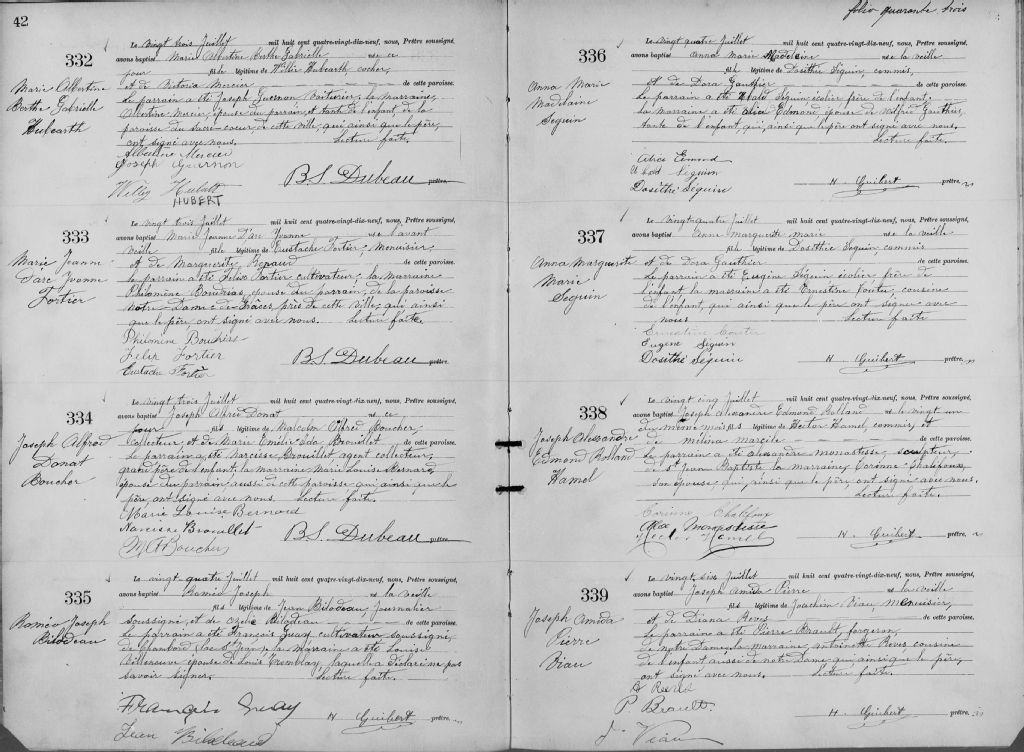 42
332
Marie Albertine
Berthe Gabrielle
Hubearth
Le vingt trois Juillet mil huit cent quatre-vingt-dix-neuf, nous, Prêtre soussigné,
avons baptisé Marie Albertine Berthe Gabrielle née ce
jour fille légitime de Willie Hubearth, cocher,
et de Victoria Mercier de cette paroisse.
Le parrain a été Joseph Guernon voiturier, la marraine,
Albertine Mercier, épouse du parrain, et tante de l'enfant de la
paroisse du Sacré-coeur de cette ville, qui, ainsi que le père,
ont signé avec nous. Lecture faite.
Albertine Mercier
Joseph Guernon
Willy Hubert
HUBERT
B.S. Dubeau prêtre
333
Marie Jeanne
D'arc Yvonne
Fortier
Le vingt trois Juillet mil huit cent quatre-vingt-dix-neuf, nous, Prêtre soussigné,
avons baptisé Marie Jeanne D'arc Yvonne née l'avant
veille fille légitime de Eustache Fortier, menuisier,
et de Marguerite Renaud de cette paroisse.
Le parrain a été Félix Fortier cultivateur; la marraine
Philomène Boudrias, épouse du parrain, de la paroisse
Notre-Dame de Grâces, près de cette ville; qui ainsi
que le père, ont signé avec nous. Lecture faite.
Philomène
Felix Fortier
Eustache Fortier
B.S. Dubeau prêtre
334
Joseph Alfred
Donat
Boucher
Le vingt trois Juillet mil huit cent quatre-vingt-dix-neuf, nous, Prêtre soussigné,
avons baptisé Joseph Alfred Donat né ce
jour fils légitime de Malcolm Alfred Boucher,
collecteur, et de Marie Emélie Eda Brouillet de cette paroisse.
Le parrain a été, Narcisse Brouillet, agent collecteur,
grand père de l'enfant, la marraine Marie Louise Bernard,
épouse du parrain aussi de cette paroisse qui ainsi que le
père, ont signé avec nous. Lecture faite.
Marie Louise Bernard
Narcisse Brouillet
M. A. Boucher
B.S. Dubeau prêtre
335
Roméo Joseph
Bilodeau
Le vingt quatre Juillet mil huit cent quatre-vingt-dix-neuf, nous, Prêtre soussigné,
avons baptisé Roméo Joseph né la veille
fils légitime de Jean Bilodeau Journalier
soussigné, et de Ozélie Bilodeau de cette paroisse.
Le parrain a été François Guay cultivateur, soussigné,
de Chambord (Lac St Jean) la marraine a été Louise
Villeneuve épouse de Louis Tremblay, laquelle a déclaré ne pas
savoir signer. Lecture faite.
François Guay
Jean Bilodeau
H. Guibert prêtre
folio quarante trois
336
Anna Marie
Madelaine
Séguin
Le vingt quatre Juillet mil huit cent quatre-vingt-dix-neuf, nous, Prêtre soussigné,
avons baptisé Anna Marie Madeleine née la veille
fille légitime de Dosithée Séguin, commis,
et de Dora Gauthier de cette paroisse.
Le parrain a été Abald Séguin, écolier frère de l'enfant;
la marraine a été Alice Edmond épouse de Wilfrid Gauthier,
tante de l'enfant, qui, ainsi que le père ont signé avec nous.
Lecture faite.
Alice Edmond
Séguin
Dosithé Séguin
H. Guibert prêtre
337
Anna Marguerite
Marie
Séguin
Le vingt quatre Juillet mil huit cent quatre-vingt-dix-neuf, nous, Prêtre soussigné,
avons baptisé Anna Marguerite Marie née la veille
fille légitime de Dosithée Séguin, commis
et de Dora Gauthier de cette paroisse.
Le parrain a été Eugène Séguin écolier frère de
l'enfant la marraine a été Ernestine cousine
de l'enfant, qui ainsi que le père ont signé avec
nous Lecture faite
Ernestine
Eugene Séguin
Dosithé Séguin
H. Guibert prêtre
338
Joseph Alexandre
Edmond Rolland
Hamel
Le vingt cinq Juillet mil huit cent quatre-vingt-dix-neuf, nous, Prêtre soussigné,
avons baptisé Joseph Alexandre Edmond Rolland né le vingt un
du même mois fils légitime de Hector Hamel, commis, et
de Mélina Marcile de cette paroisse.
Le parrain a été Alexandre Monastesse, sculpteur,
de St Jean Baptiste la marraine, Corinne Chalifoux,
son épouse qui, ainsi que le père, ont signé avec nous.
Lecture faite.
Corinne Chalifoux
Alex Monastesse
Hector Hamel
H. Guibert prêtre
339
Joseph Amida
Pierre
Viau
Le vingt six Juillet mil huit cent quatre-vingt-dix-neuf, nous, Prêtre soussigné,
avons baptisé Joseph Amida Pierre né la veille
fils légitime de Joachim Viau, menuisier,
et de Diana Reves de cette paroisse.
Le parrain a été Pierre Brault, forgeron,
de Notre Dame, la marraine Antoinette Reves cousine
de l'enfant aussi de Notre Dame qui ainsi que le père,
ont signé avec nous. Lecture faite.
A Reeves
P. Brault.
J. Viau
H. Guibert prêtre